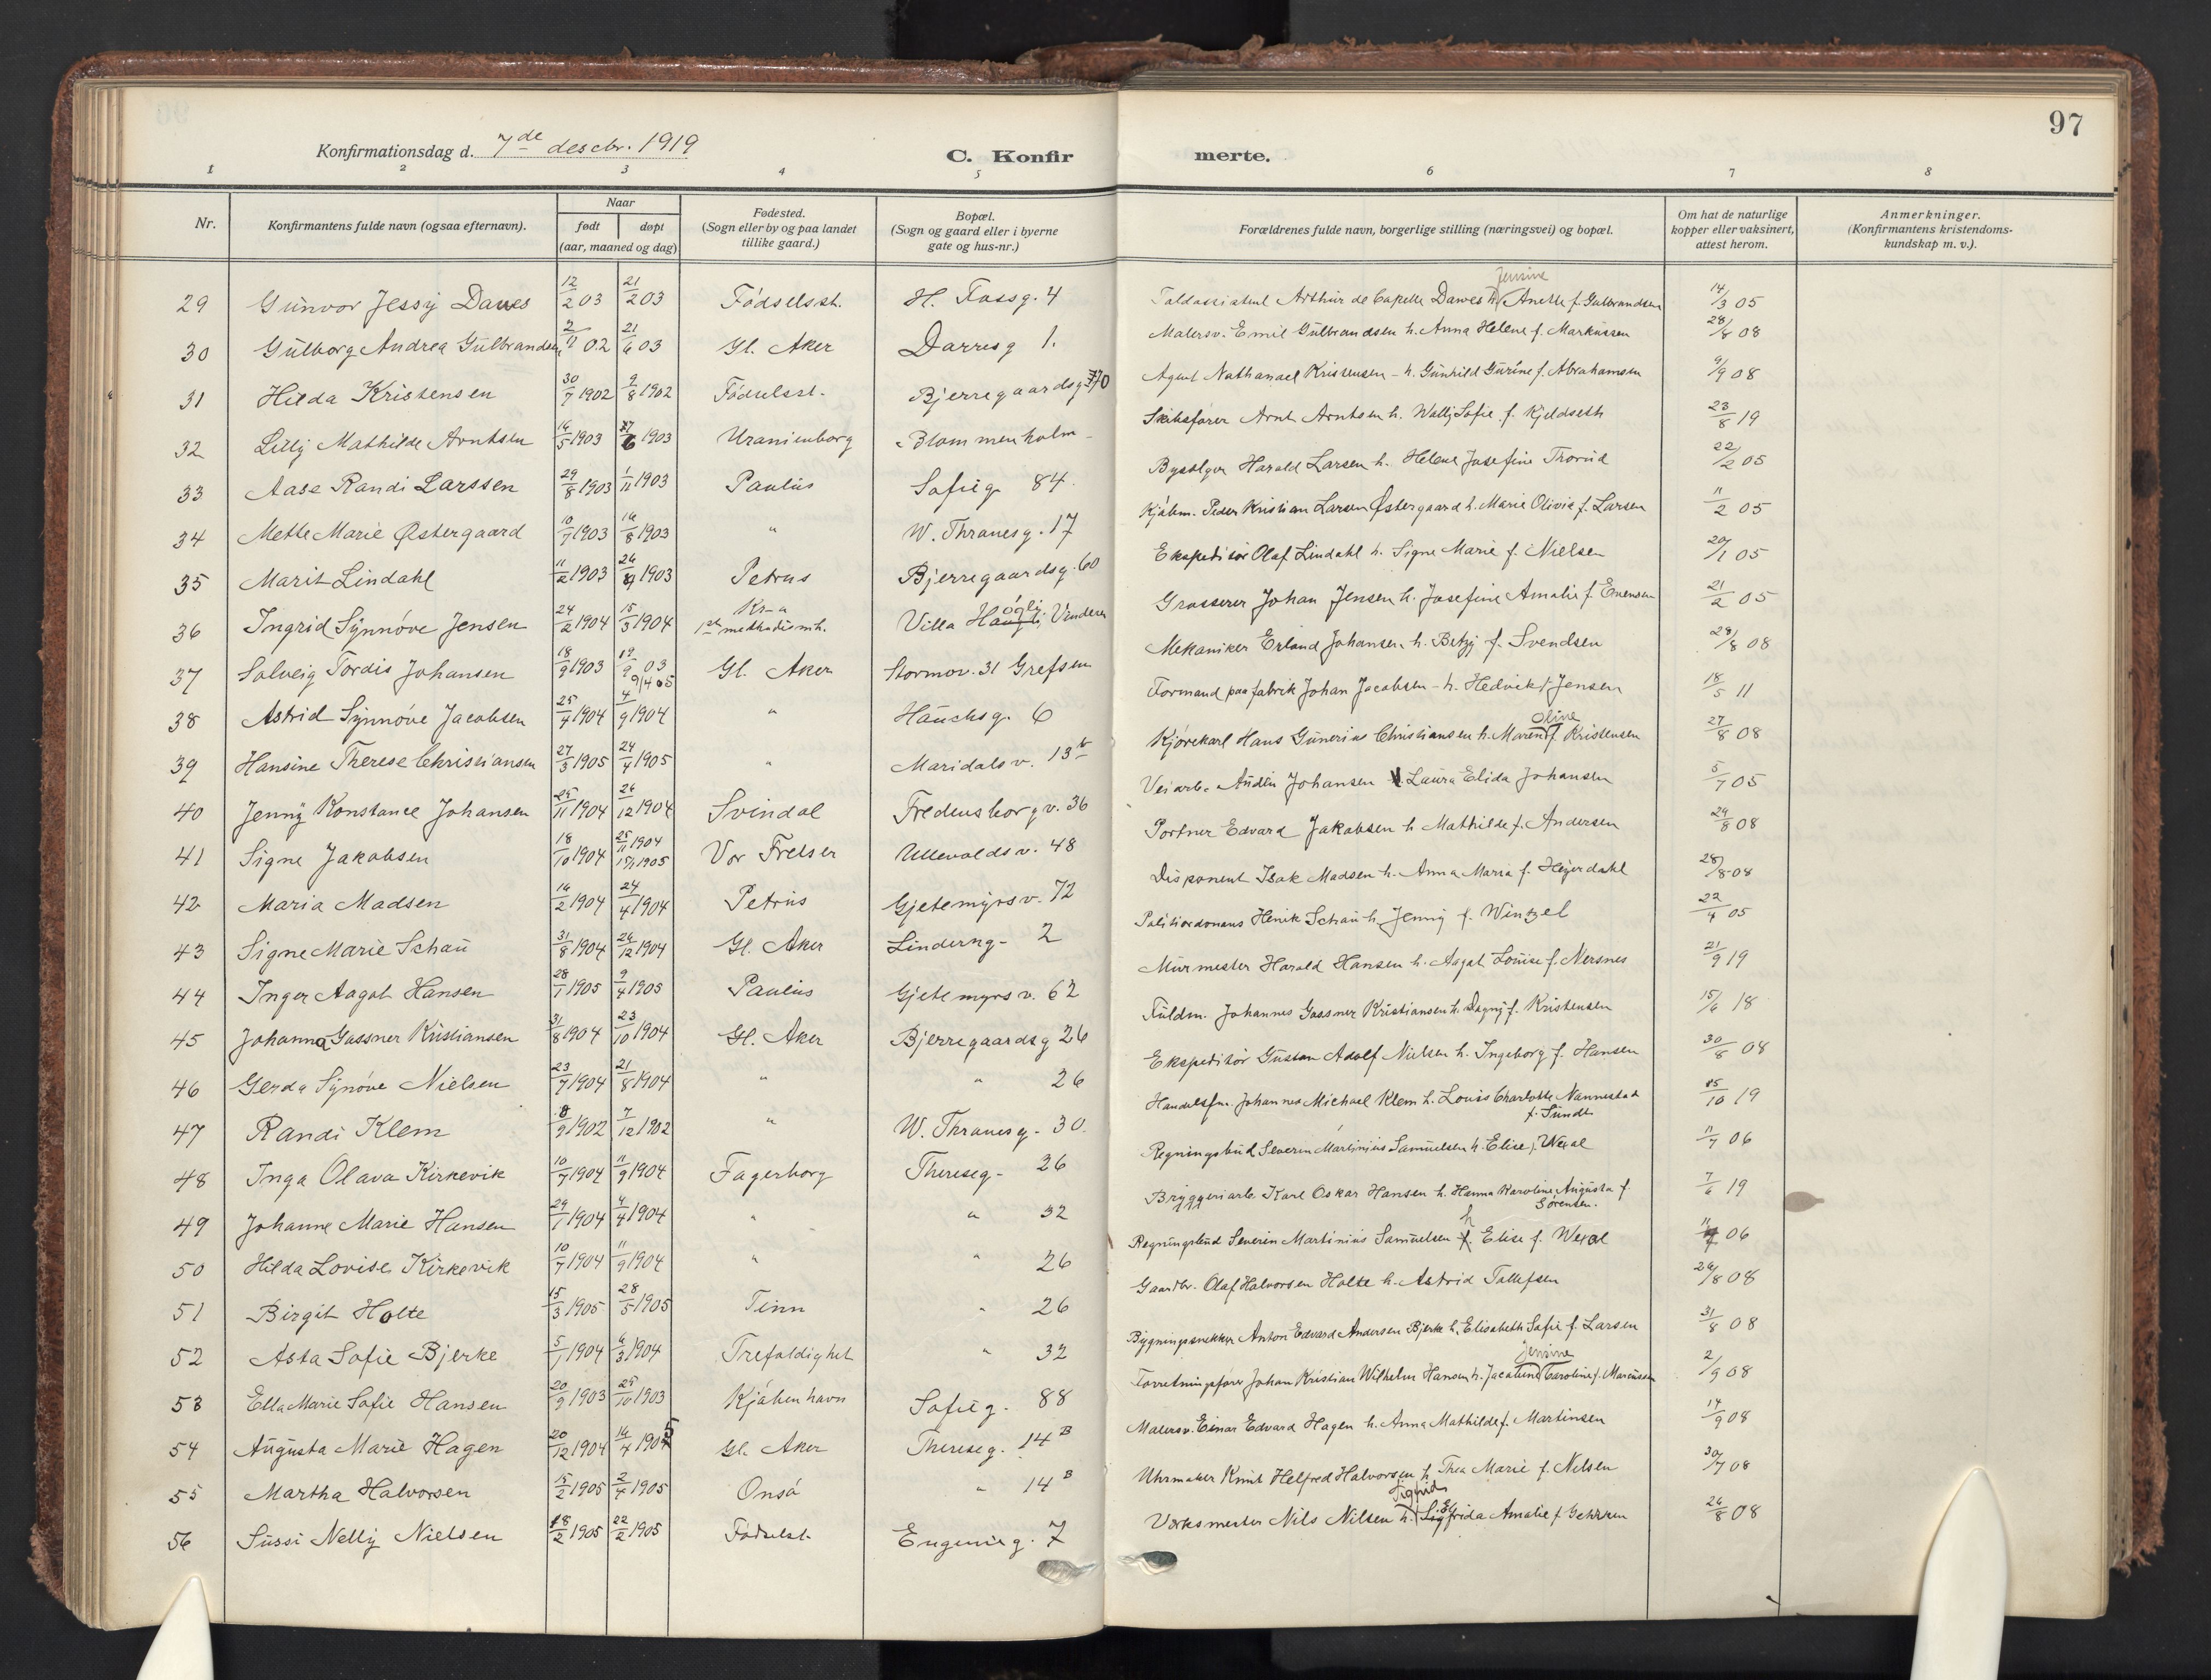 97
Konfirmationsdag d. 7de descbr. 1919
C. Konfirmerte.
1 2 3 4 5 6 7 8
Nr. Konfirmantens fulde navn (ogsaa efternavn). Naar født døpt (aar, maaned og dag) Fødested. (Sogn eller by og paa landet tillike gaard.) Bopæl. (Sogn og gaard eller i byerne gate og hus-nr.) Forældrenes fulde navn, borgerlige stilling (næringsvei) og bopæl. Om hat de naturlige kopper eller vaksinert, attest herom. Anmerkninger. (Konfirmantens kristendomskundskap m. v.).
29 Gunvor Jessy Dawes 12/2 03 21/2 03 Fødselsst. H. Fossg. 4 Toldassistent Arthur de Capelle Dawes h. Jensine Anette f. Gulbrandsen 14/3 05
30 Gulborg Andrea Gulbrandsen 02 21/6 03 Gl. Aker Darresg 1. Malersv. Emil Gulbrandsen h. Anna Helene f. Markussen 28/8 08
31 Hilda Kristensen 30/7 1902 9/8 1902 Fødselsst. Bjerregaardsg 70 Agent Nathanael Kristensen - h. Gunhild Gurine f. Abrahamsen 9/9 08
32 Lilly Mathilde Arntsen 14/5 1903 27/6 1903 Uranienborg Blommenholm Skibsfører Arnt Arntsen h. Wally Sofie f. Kjeldseth 23/8 19
33 Aase Randi Larssen 29/8 1903 1/11 1903 Paulus Sofieg. 84. Harald Larsen h. Helene Josefine Trorud 22/2 05
34 Mette Marie Østergaard 10/7 1903 16/8 1903 " W. Thranesg. 17 Kjøbm. Peder Kristian Larsen Østergaard h. Marie Olivie f. Larsen 11/2 05
35 Marit Lindahl 11/2 1903 26/ 1903 Petrus Bjerregaardsg. 60 Ekspeditør Olaf Lindahl h. Signe Marie f. Nielsen 20/1 05
36 Ingrid Synnøve Jensen 24/2 1904 15/3 1904 Kr-a 1ste methodismh. Villa Vinderen Grosserer Johan Jensen h. Josefine Amalie f. Evensen 21/2 05
37 Solveig Tordis Johansen 18/9 1903 19/9 03 9/4 05 Gl. Aker Stormov. 31 Grefsen Mekaniker Erland Johansen h. Betzy f. Svendsen 28/8 08
38 Astrid Synnøve Jacobsen 25/4 1904 4/9 1904 " Hauchsg. 6 Formand paa fabrik Johan Jacobsen - h. Hedvik f. Jensen 18/5 11
39 Hansine Therese Christiansen 27/3 1905 24/4 1905 " Maridalsv. 13b Kjørekarl Hans Gunerius Christiansen h. Maren Oline f. Kristensen 27/8 08
40 Jenny Konstance Johansen 25/11 1904 26/12 1904 Svindal Fredensborgv. 36 Veiarb. Audun Johansen h. Laura Elida Johansen 5/7 05
41 Signe Jakobsen 18/10 1904 25/11 1904 1905 Vor Frelser Ullevoldsv. 48 Portner Edvard Jakobsen h Mathilde f. Andersen 29/8 08
42 Maria Madsen 14/2 1904 24/4 1904 Petrus Gjetemyrsv. 72 Disponent Isak Madsen h. Anna Maria f. Heyerdahl 28/8 08
43 Signe Marie Schau 31/8 1904 26/12 1904 Gl. Aker Linderng - 2 Politiordonans Henik Schau h. Jenny f. Wintzel 22/4 05
44 Inger Aagot Hansen 28/1 1905 9/4 1905 Paulus Gjetemyrsv. 62 Murmester Harald Hansen h. Aagot Louise f. Nersnes 21/9 19
45 Johanna Gassner Kristiansen 31/8 1904 23/10 1904 Gl. Aker Bjerregaardsg 26 Fuldm. Johannes Gassner Kristiansen h. Dagny f. Kristensen 15/6 18
46 Gerda Synøve Nielsen 23/7 1904 21/8 1904 " " 26 Ekspeditør Gustav Adolf Nielsen h. Ingeborg f. Hansen 30/8 08
47 Randi Klem 8/9 1902 7/12 1902 " W. Thranesg - 30. Handelsfm. Johannes Michael Klem h. Louis Charlotte Nannestad f. Sundt 15/10 19
48 Inga Olava Kirkevik 10/7 1904 11/9 1904 Fagerborg Thereseg - 26 Regningsbud Severin Martinius Samuelsen h. Elise f. Wexal 11/7 06
49 Johanne Marie Hansen 29/1 1904 4/4 1904 " " 32 Bryggeriarb. Karl Oskar Hansen h. Hanna Karoline Augusta f. Sørensen. 7/6 19
50 Hilda Lovise Kirkevik 10/7 1904 11/9 1904 " " 26 Regningsbud Severin Martinius Samuelsen h. Elise f. Wexal 06
51 Birgit Holte 15/3 1905 28/5 1905 Tinn " 26 Gaardbr. Olaf Halvorsen Holte h. Astrid Tollefsen 26/8 08
52 Asta Sofie Bjerke 5/1 1904 6/3 1904 Trefoldighet " 32 Bygningssnekker Anton Edvard Andersen Bjerke h. Elisabeth Sofie f. Larsen 31/8 08
53 Ella Marie Sofie Hansen 20/9 1903 25/10 1903 Kjøbenhavn Sofieg. 88 Forretningsfører Johan Kristian Wilhelm Hansen h. Jacobine Jensine Caroline f. Marcussen 2/9 08
54 Augusta Marie Hagen 20/12 1904 16/4 1905 Gl. Aker Thereseg. 14B Malersv. Einar Edvard Hagen h. Anna Mathilde f. Martinsen 14/9 08
55 Martha Halvorsen 15/2 1905 2/4 1905 Onsø " 14B Uhrmaker Knut Helfred Halvorsen h. Thea Marie f. Nelsen 30/7 08
56 Sussi Nelly Nielsen 18/2 1905 22/2 1905 Fødselst. Eugenieg. 7 Verksmester Nils Nilsen h. Sigrid Amalie f. 26/8 08